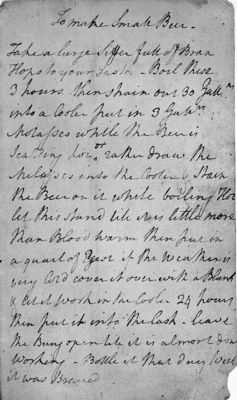 To make Small Beer -
Take a large Siffer full of Bran
Hops to your Taste - Boil these
3 hours. then strain out 30 Gall.n
into a Cooler put in 3 Gall.n
Molasses while the Beer is
Scalding hot or rather draw the
Molasses into the Cooler & Strain
the Beer on it while boiling Hot
let this stand till it is little more
than Blood warm then put in
a quart of Yeast if the Weather is
very Cold cover it over with a Blank
& let it work in the Cooler 24 hours
then put it into the Cask - leave
the Bung open till it is almost done
working - Bottle it that day Week
it was Brewed